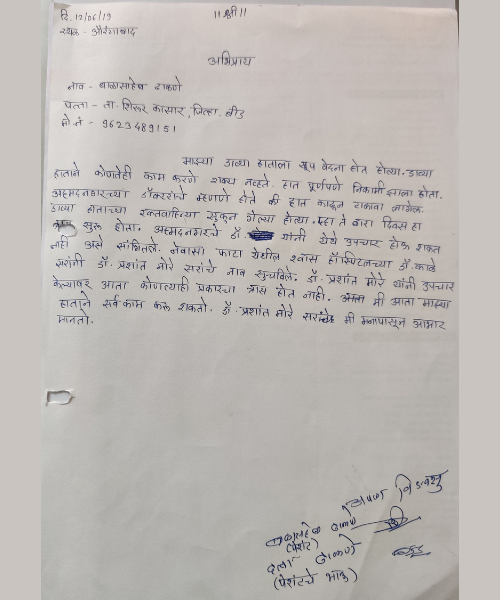 दि. 12/06/19
॥ श्री ॥
स्थळ - औरंगाबाद
अभिप्राय
नाव - बाळासाहेब ढाकणे
पत्ता - ता. शिरूर कासार, जिल्हा. बीड
मो.नं - 9623489151
माझ्या डाव्या हाताला खूप वेदना होत होत्या. डाव्या
हाताने कोणतेही काम करणे शक्य नव्हते. हात पूर्णपणे निकामी झाला होता.
अहमदनगरच्या डॉक्टरांचे म्हणणे होते की हात काढून टाकावा लागेल.
डाव्या हाताच्या रक्तवाहिन्या सुकून गेल्या होत्या. दहा ते बारा दिवस हा
सुरू होता. अहमदनगरचे डॉ. यांनी येथे उपचार होऊ शकत
नाही असे सांगितले. नेवासा फाटा येथील श्वास हॉस्पिटलच्या डॉ. काळे
सरांनी डॉ. प्रशांत मोरे सरांचे नाव सुचविले. डॉ. प्रशांत मोरे यांनी उपचार
केल्यावर आता कोणत्याही प्रकारचा त्रास होत नाही. मी आता माझ्या
हाताने सर्व काम करू शकतो. डॉ. प्रशांत मोरे सरांचे मी मनापासून आभार
मानतो.
आपला विश्वासू
बाळासाहेब ढाकणे
(पेशंट)
ढाकणे
(पेशंटचे भाऊ)